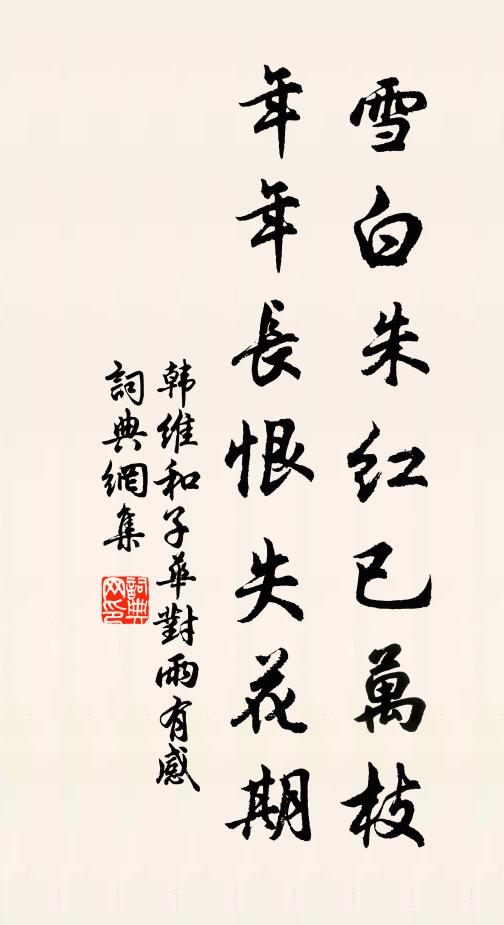 雪白朱红已萬枝
年年長恨失花期
韩維和子華對雨有感
詞典網集
詞典网印